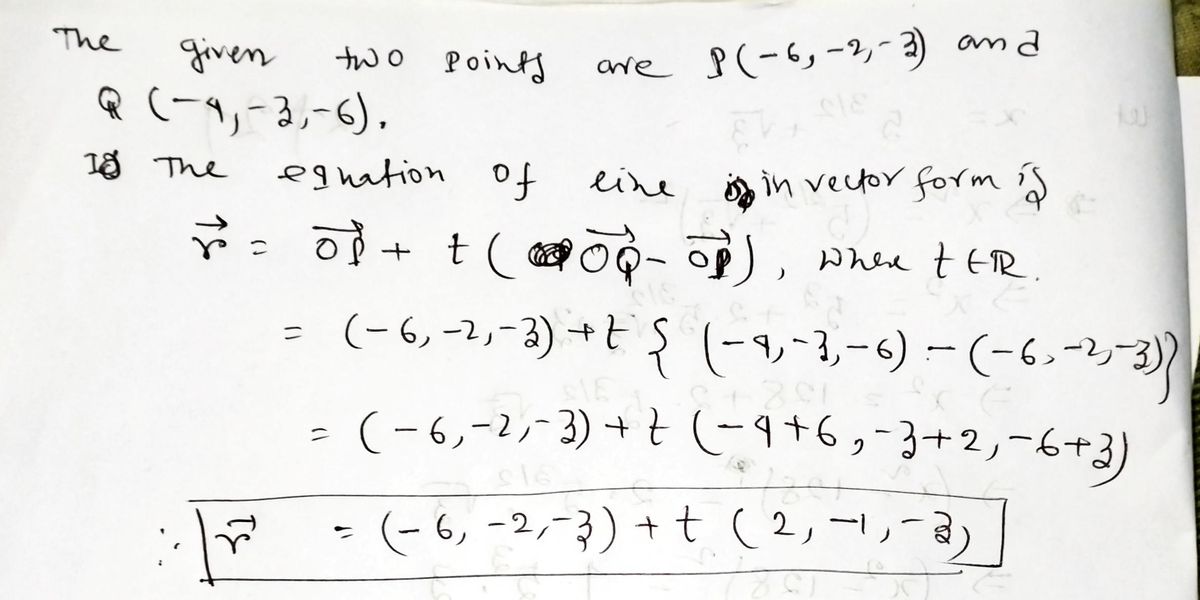 The given two points are P(-6,-2,-3) and
Q (-4,-3,-6).
The equation of line in vector form is
r⃗ = OP⃗ + t ( OQ⃗ - OP⃗ ), where t ∈ ℝ.
= (-6,-2,-3) + t { (-4,-3,-6) - (-6,-2,-3)}
= (-6,-2,-3) + t (-4+6, -3+2, -6+3)
∴ r⃗ = (-6, -2,-3) + t ( 2, -1, -3)